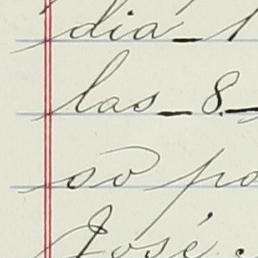 dia_1
las_8_
so po
José